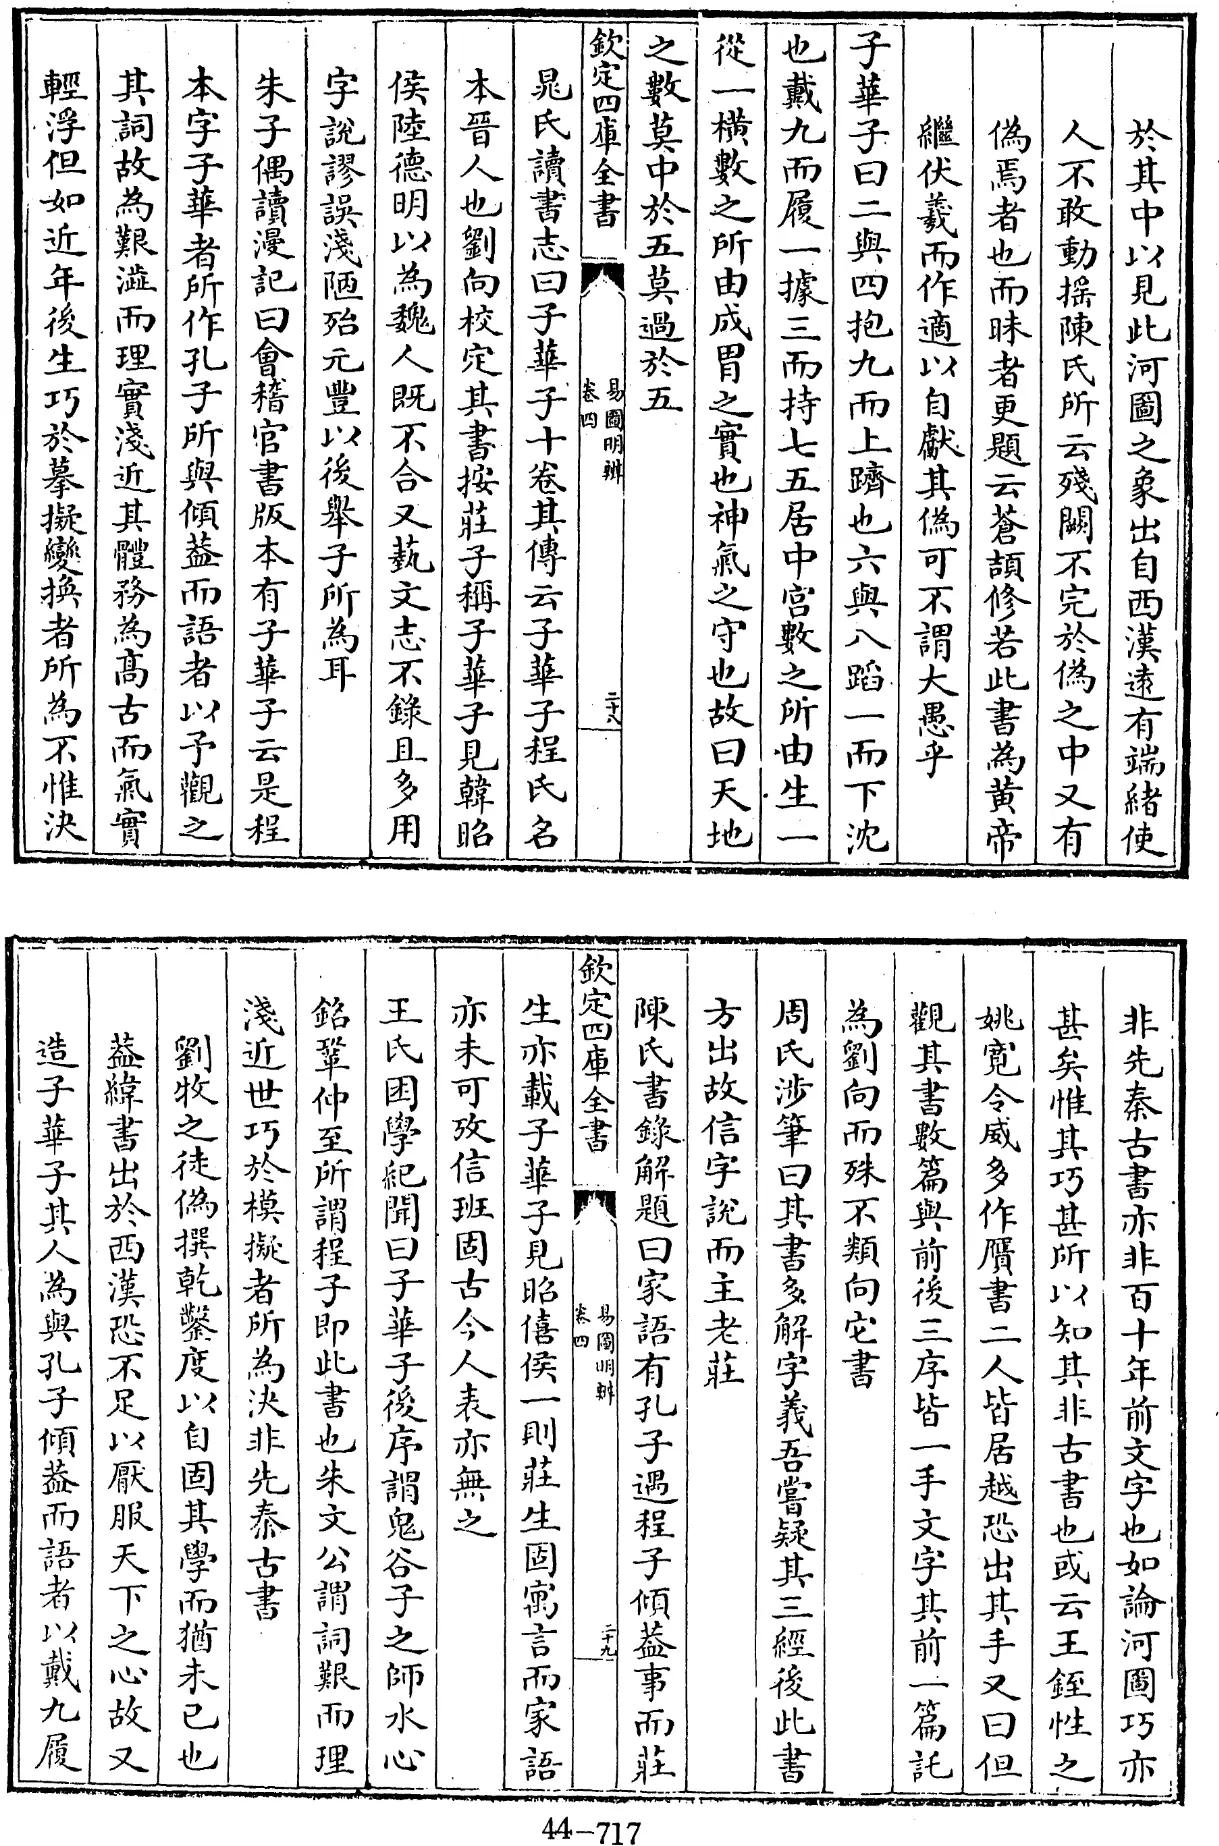 於其中以見此河圖之象出自西漢逺有端緒使
人不敢動摇陳氏所云殘闕不完於偽之中又有
偽焉者也而昧者更題云蒼頡修若此書為黄帝
繼伏羲而作適以自獻其偽可不謂大愚乎
子華子曰二與四抱九而上躋也六與八蹈一而下沈
也戴九而履一據三而持七五居中宫數之所由生一
從一横數之所由成胃之實也神氣之守也故曰天地
之數莫中於五莫過於五
欽定四庫全書
易圖明辨
卷四
二十八
晁氏讀書志曰子華子十卷其傳云子華子程氏名
本晉人也劉向校定其書按莊子稱子華子見韓昭
侯陸德明以為魏人既不合又藝文志不錄且多用
字說謬誤淺陋殆元豐以後舉子所為耳
朱子偶讀漫記曰會稽官書版本有子華子云是程
本字子華者所作孔子所與傾葢而語者以予觀之
其詞故為艱澁而理實淺近其體務為髙古而氣實
輕浮但如近年後生巧於摹擬變換者所為不惟决
非先秦古書亦非百十年前文字也如論河圖巧亦
甚矣惟其巧甚所以知其非古書也或云王銍性之
姚寛令威多作贋書二人皆居越恐出其手又曰但
觀其書數篇與前後三序皆一手文字其前一篇託
為劉向而殊不類向它書
周氏涉筆曰其書多解字義吾嘗疑其三經後此書
方出故信字說而主老莊
陳氏書錄解題曰家語有孔子遇程子傾葢事而莊
欽定四庫全書
易圖明辨
卷四
二十九
生亦載子華子見昭僖侯一則莊生固寓言而家語
亦未可攷信班固古今人表亦無之
王氏困學紀聞曰子華子後序謂鬼谷子之師水心
銘鞏仲至所謂程子即此書也朱文公謂詞艱而理
淺近世巧於模擬者所為決非先秦古書
劉牧之徒偽撰乾鑿度以自固其學而猶未已也
葢緯書出於西漢恐不足以厭服天下之心故又
造子華子其人為與孔子傾葢而語者以戴九履
44-717